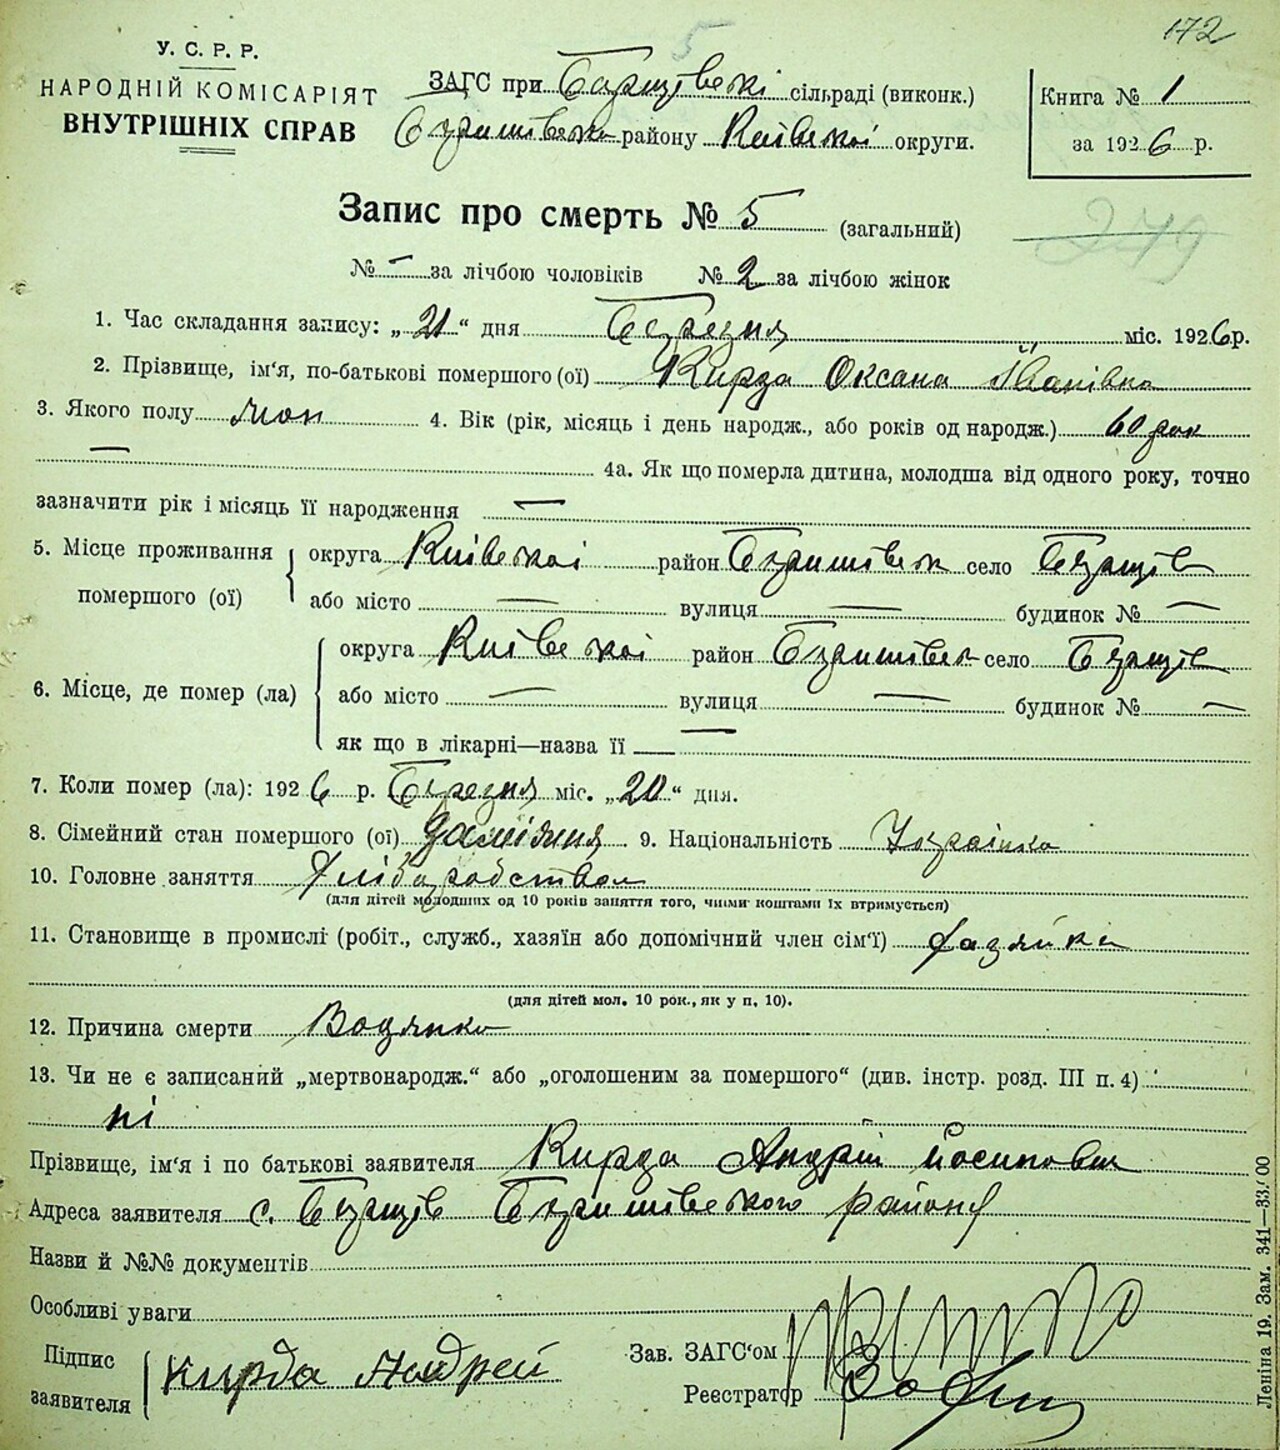 172
5
У. С. Р. Р.
НАРОДНІЙ КОМІСАРІЯТ
ВНУТРІШНІХ СПРАВ
ЗАГС при сільраді (виконк.)
району Київської округи.
Книга № 1
за 1926 р.
249
Запис про смерть № 5 (загальний)
№ – за лічбою чоловіків № 2 за лічбою жінок
1. Час складання запису: „21“ дня Березня міс. 1926 р.
2. Прізвище, ім'я, по-батькові помершого (ої) Кирда Оксана Іванівна
3. Якого полу жон 4. Вік (рік, місяць і день народж., або років од народж.) 60 рок
— 4а. Як що померла дитина, молодша від одного року, точно
зазначити рік і місяць її народження —
5. Місце проживання округа Київської район село
помершого (ої) або місто — вулиця — будинок № —
округа Київської район село
6. Місце, де помер (ла) або місто — вулиця — будинок № —
як що в лікарні—назва її —
7. Коли помер (ла): 1926 р. Березня міс. „20“ дня.
8. Сімейний стан помершого (ої) 9. Національність Українка
10. Головне заняття Хліборобством
(для дітей молодших од 10 років заняття того, чиїми коштами їх втримується)
11. Становище в промислі (робіт., служб., хазяїн або допомічний член сім'ї) хазяйка
(для дітей мол. 10 рок., як у п. 10).
12. Причина смерти Водянка
13. Чи не є записаний „мертвонародж.“ або „оголошеним за помершого“ (див. інстр. розд. III п. 4)
ні
Прізвище, ім'я і по батькові заявителя Кирда Андрій Йосипович
Адреса заявителя с. району
Назви й №№ документів
Особливі уваги
Підпис заявителя Кирда Андрей
Зав. ЗАГС'ом
Реєстратор
Леніна 19. Зам. 341—33.00